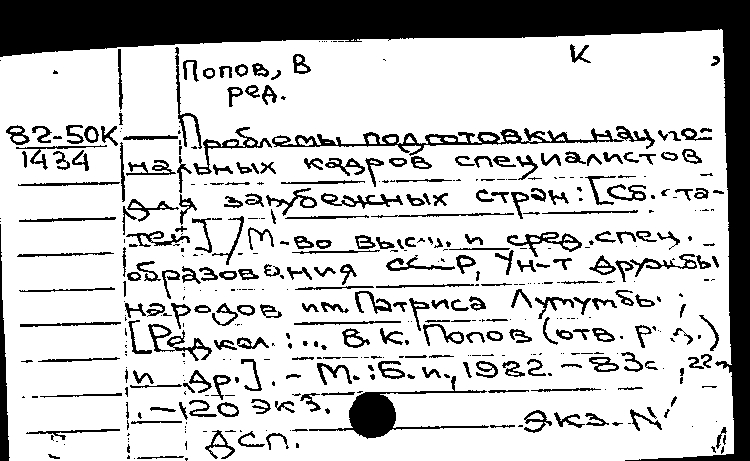 К
Попов, В
ред.
82-50К
1434
Проблемы подготовки нацио-
нальных кадров специалистов
для зарубежных стран: [Сб. ста-
тей] / М-во высш. и сред. спец.
образования СССР, Ун-т дружбы
народов им. Патриса Лумумбы;
[Редкол.: ... В. К. Попов (отв. р
и др.]. - М.: Б. и., 1982. - 83с
. - 120 экз.
Экз. N
ДСП.